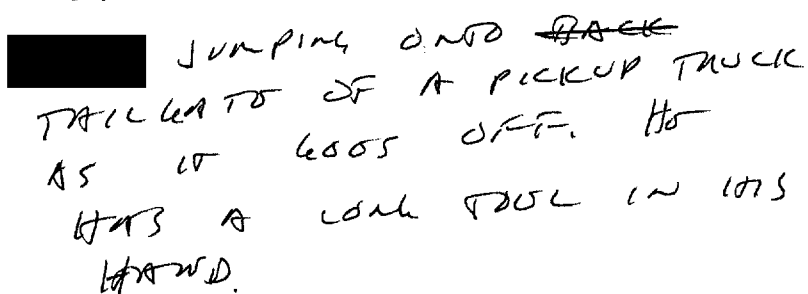 JUMPING ONTO BACK
TAILGATE OF A PICKUP TRUCK
AS IT GOES OFF. HE
HAS A LONG TOOL IN HIS
HAND.